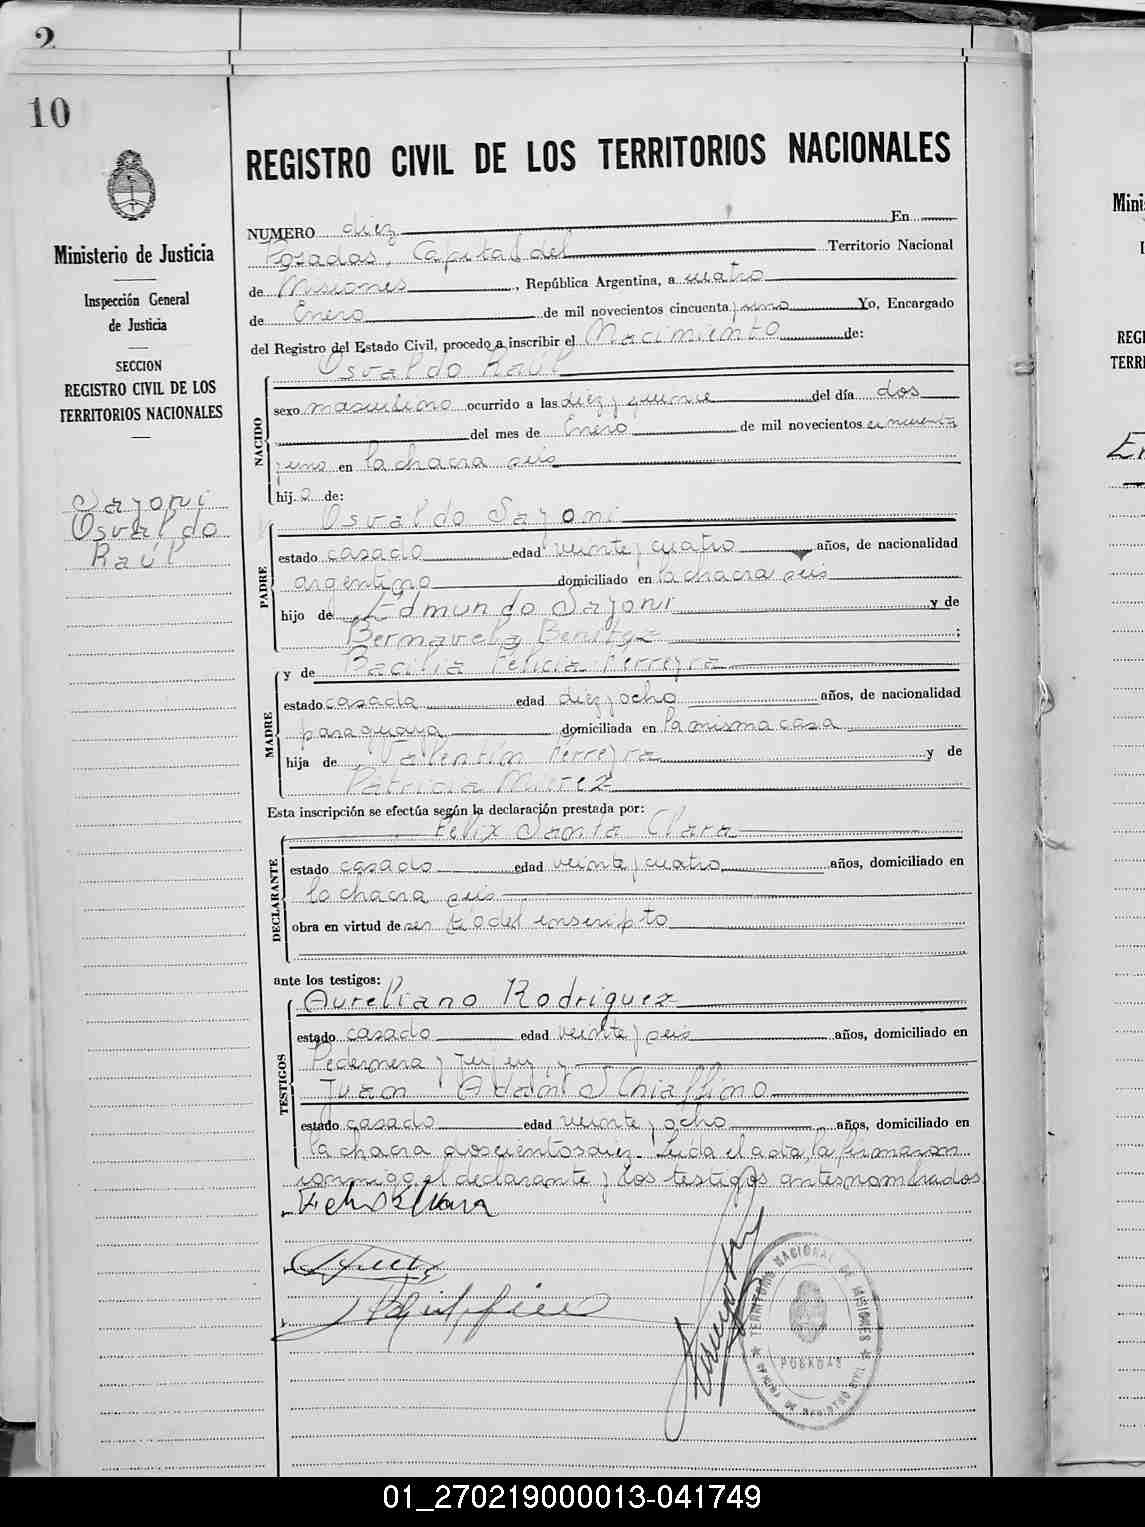 2
10
REGISTRO CIVIL DE LOS TERRITORIOS NACIONALES
Ministerio de Justicia
Inspección General
de Justicia
SECCION
REGISTRO CIVIL DE LOS
TERRITORIOS NACIONALES
Sazoni
Osvaldo
Raúl
NUMERO diez En
Posadas, Capital del Territorio Nacional
de Misiones, República Argentina, a cuatro
de Enero de mil novecientos cincuenta y uno Yo, Encargado
del Registro del Estado Civil, procedo a inscribir el Nacimiento de:
NACIDO
Osvaldo Raúl
sexo masculino ocurrido a las diez y quince del día dos
del mes de Enero de mil novecientos cincuenta
y uno en la chacra seis
hijo de:
PADRE
Osvaldo Sazoni
estado casado edad veinte y cuatro años, de nacionalidad
argentino domiciliado en la chacra seis
hijo de Edmundo Sazoni y de
Benitez ;
MADRE
y de Bacilia Felicia Ferreyra
estado casada edad diez y ocho años, de nacionalidad
paraguaya domiciliada en la misma casa
hija de Valentin Ferreyra y de
Patricia
Esta inscripción se efectúa según la declaración prestada por:
DECLARANTE
Felix Santa Clara
estado casado edad veinte y cuatro años, domiciliado en
la chacra seis
obra en virtud de ser tío del inscripto
ante los testigos:
TESTIGOS
Aureliano Rodriguez
estado casado edad veinte y seis años, domiciliado en
Pedernera y Jujuy, y
Juan Adam Schiaffino
estado casado edad veinte y ocho años, domiciliado en
la chacra doscientos diez. Leída el acta, la firmaron
conmigo el declarante y los testigos antes nombrados
TERRITORIO NACIONAL DE MISIONES
POSADAS
OFICINA DE REGISTRO CIVIL
Mini
REGI
TERRI
01_270219000013-041749